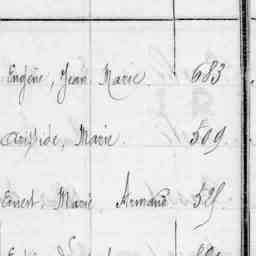 Eugène, Jean Marie. 683
Aristide, Marie. 509
Ernest, Marie Armand